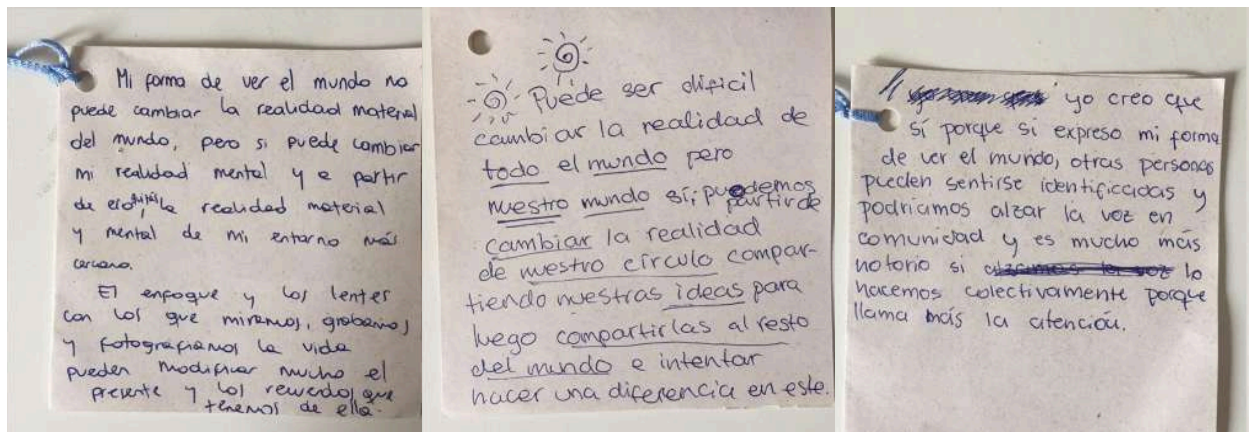 Mi forma de ver el mundo no
puede cambiar la realidad material
del mundo, pero si puede cambiar
mi realidad mental y a partir
de eso, la realidad material
y mental de mi entorno más
cercano.
El enfoque y los lentes
con los que miramos, grabamos
y fotografiamos la vida
pueden modificar mucho el
presente y los recuerdos que
tenemos de ella.
Puede ser dificil
cambiar la realidad de
todo el mundo pero
nuestro mundo sí; podemos
partir de
cambiar la realidad
de nuestro círculo compar-
tiendo nuestras ideas para
luego compartirlas al resto
del mundo e intentar
hacer una diferencia en este.
yo creo que
sí porque si expreso mi forma
de ver el mundo, otras personas
pueden sentirse identificadas y
podríamos alzar la voz en
comunidad y es mucho más
notorio si lo
hacemos colectivamente porque
llama más la atención.